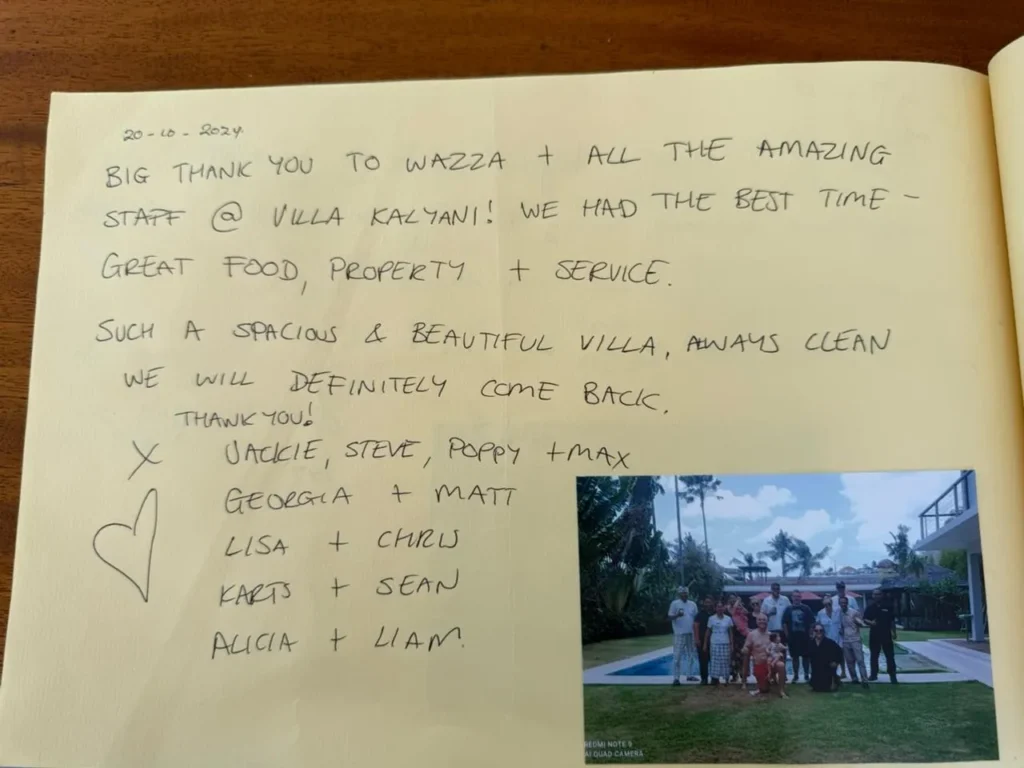 20-10-2024
BIG THANK YOU TO WAZZA + ALL THE AMAZING
STAFF @ VILLA KALYANI! WE HAD THE BEST TIME -
GREAT FOOD, PROPERTY + SERVICE.
SUCH A SPACIOUS & BEAUTIFUL VILLA, AWAYS CLEAN
WE WILL DEFINITELY COME BACK.
THANK YOU!
X JACKIE, STEVE, POPPY + MAX
GEORGIA + MATT
LISA + CHRIS
KARTS + SEAN
ALICIA + LIAM.
REDMI NOTE 9
AI QUAD CAMERA